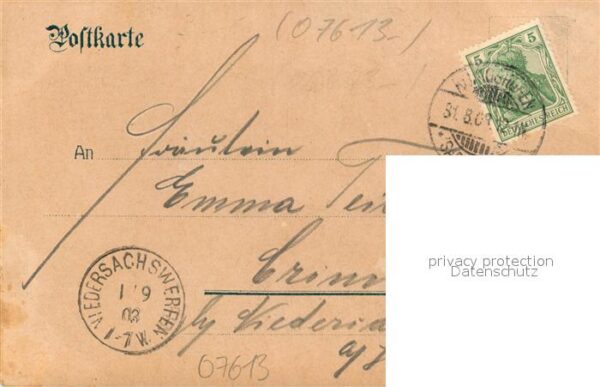 (07613-)
Postkarte
5 5
DEUTSCHES REICH
31. 8. 0
An
Fräulein
Emma Tei
Crim
by Niedersa
a/
NIEDERSACHSWERFEN
1/9
03
1-7 N.
07613
privacy protection
Datenschutz